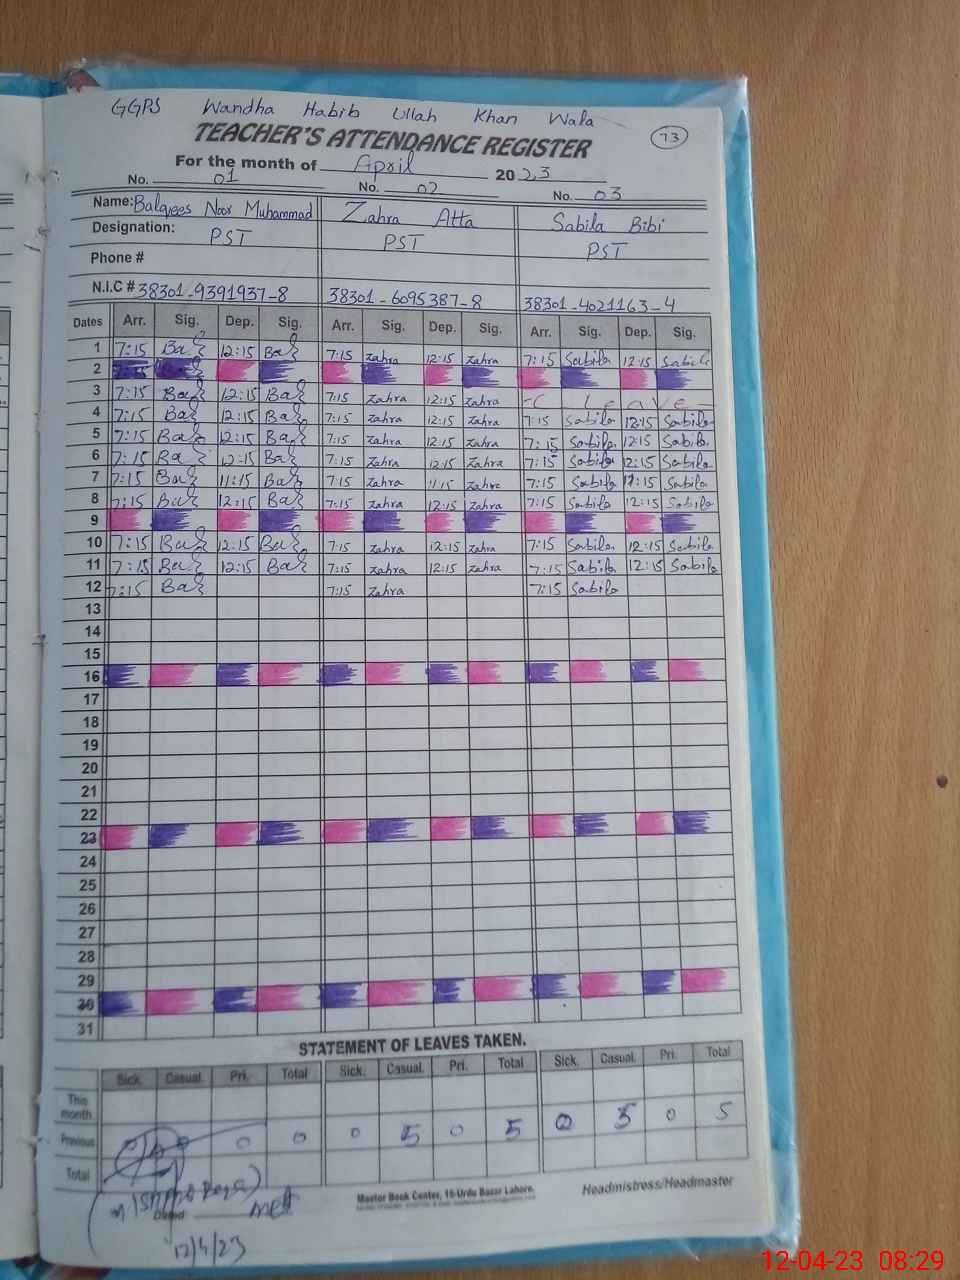 GGPS Wandha Habib Ullah Khan Wala
TEACHER'S ATTENDANCE REGISTER 73
For the month of April 2023
No. 01 No. 02 No. 03
Name: Balqees Noor Muhammad Zahra Atta Sabila Bibi
Designation: PST PST PST
Phone #
N.I.C # 38301-9391937-8 38301-6095387-8 38301-4021163-4
Dates Arr. Sig. Dep. Sig. Arr. Sig. Dep. Sig. Arr. Sig. Dep. Sig.
1 7:15 12:15 7:15 Zahra 12:15 Zahra 7:15 Sabila 12:15 Sabila
2
3 7:15 12:15 7:15 Zahra 12:15 Zahra -C Leave-
4 7:15 12:15 7:15 Zahra 12:15 Zahra 7:15 Sabila 12:15 Sabila
5 7:15 12:15 7:15 Zahra 12:15 Zahra 7:15 Sabila 12:15 Sabila
6 7:15 12:15 7:15 Zahra 12:15 Zahra 7:15 Sabila 12:15 Sabila
7 7:15 11:15 7:15 Zahra 11:15 Zahra 7:15 Sabila 11:15 Sabila
8 7:15 12:15 7:15 Zahra 12:15 Zahra 7:15 Sabila 12:15 Sabila
9
10 7:15 12:15 7:15 Zahra 12:15 Zahra 7:15 Sabila 12:15 Sabila
11 7:15 12:15 7:15 Zahra 12:15 Zahra 7:15 Sabila 12:15 Sabila
12 7:15 7:15 Zahra 7:15 Sabila
13
14
15
16
17
18
19
20
21
22
23
24
25
26
27
28
29
30
31
STATEMENT OF LEAVES TAKEN.
Sick. Casual. Pri. Total Sick. Casual. Pri. Total Sick. Casual. Pri. Total
This month
Previous 0 0 0 5 0 5 0 5 0 5
Total
Dated
12/4/23
Master Book Center, 16-Urdu Bazar Lahore.
Headmistress/Headmaster
12-04-23 08:29